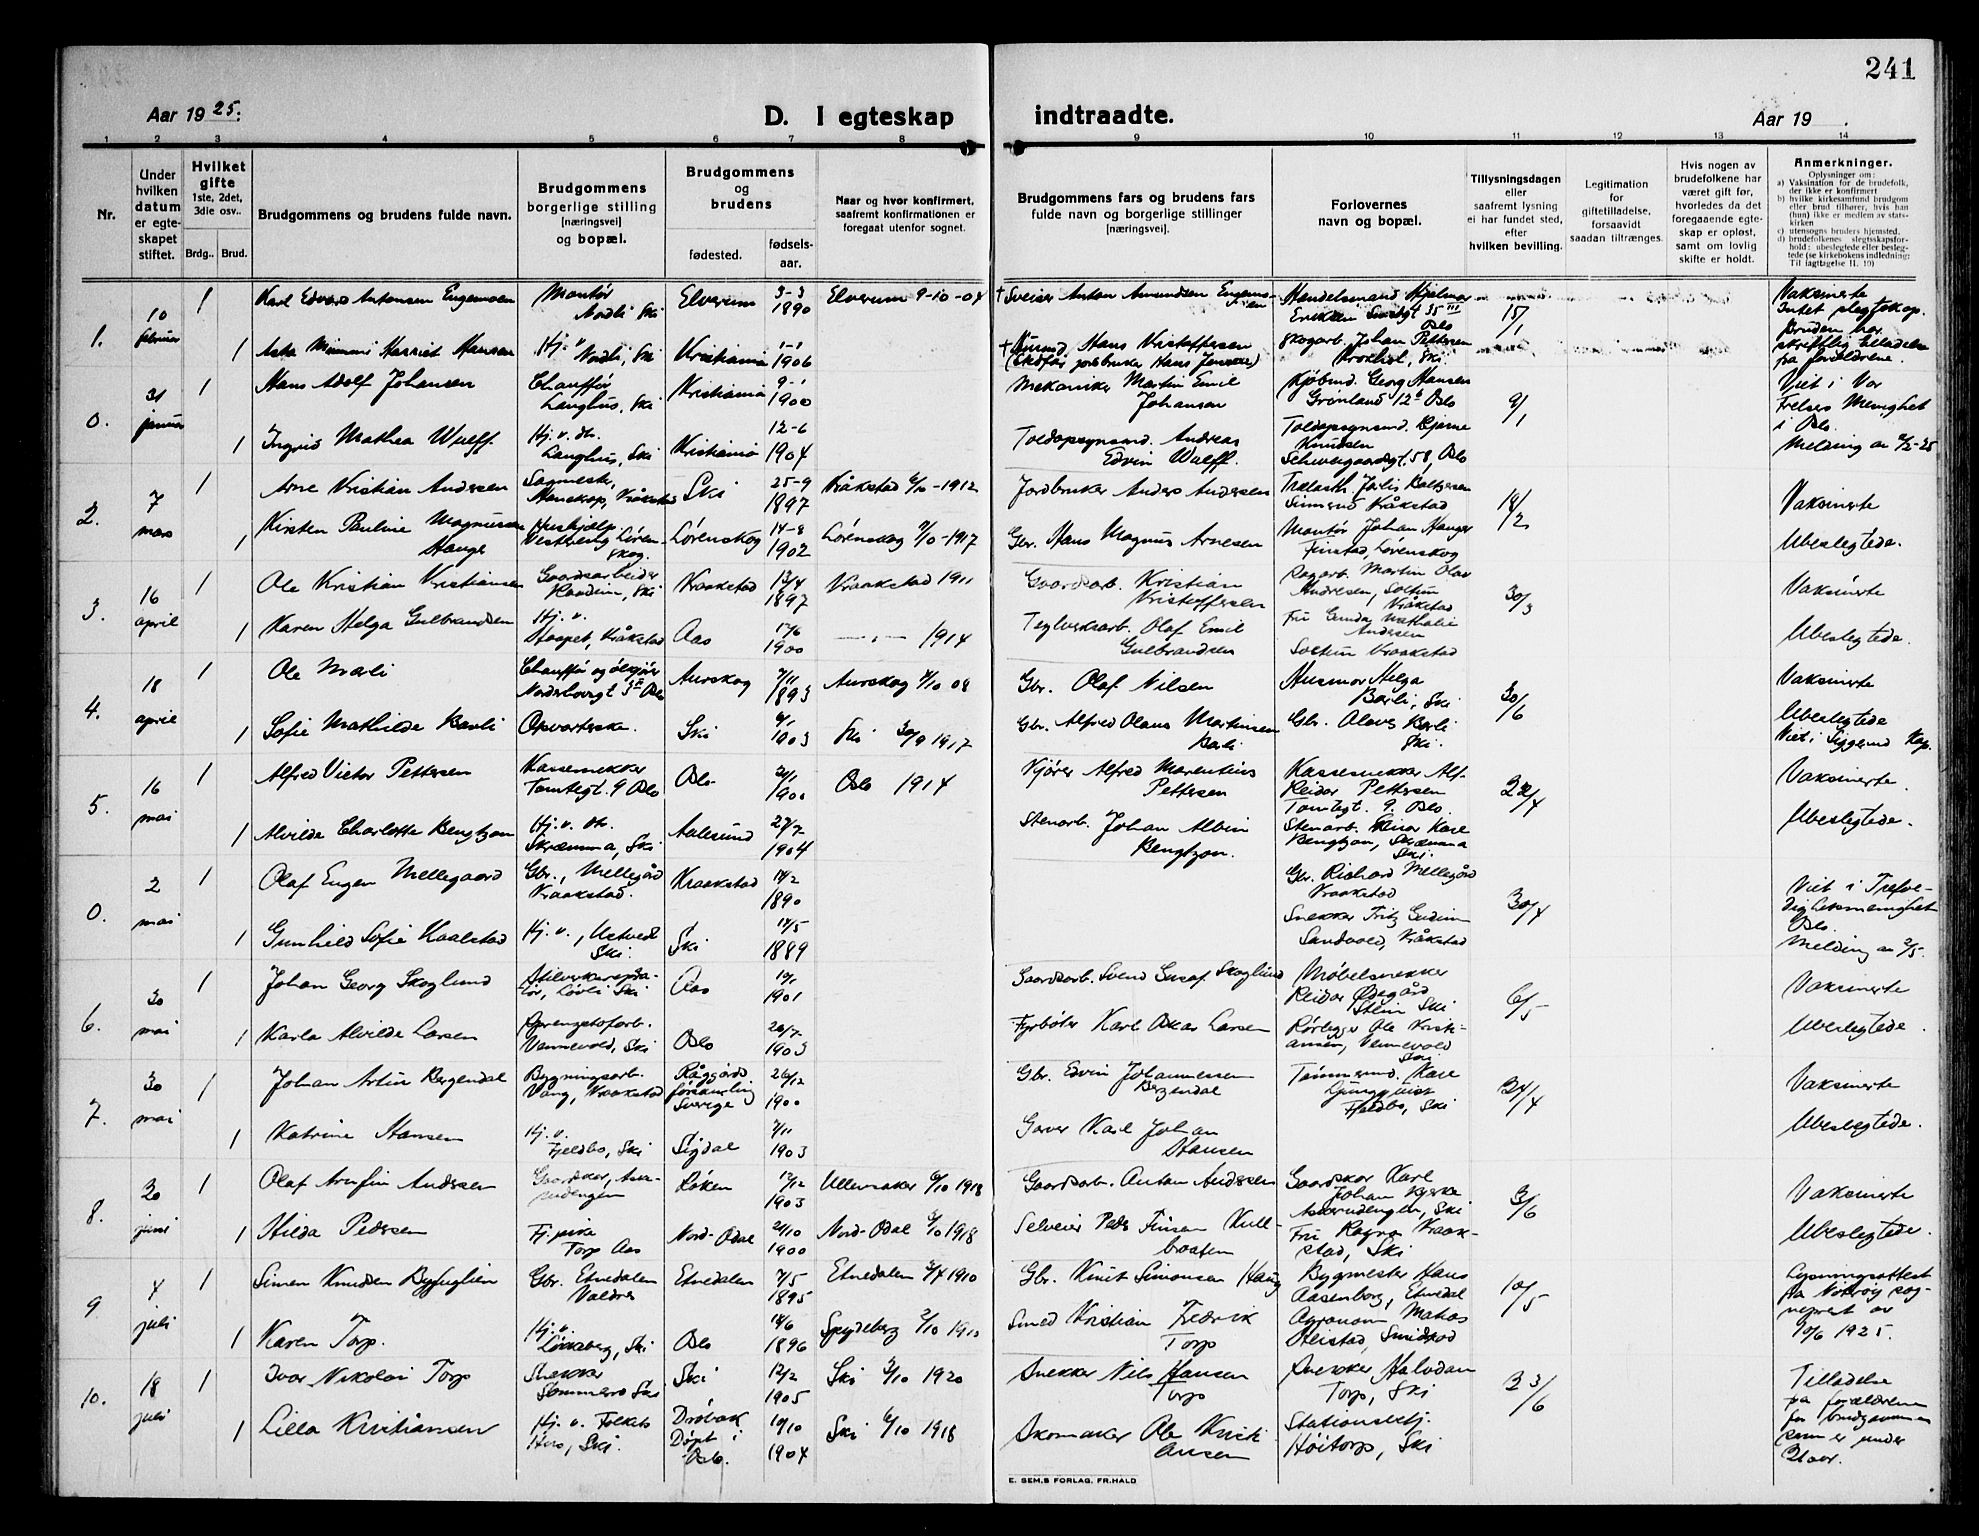 241
Aar 19 25.
D. I egteskap
indtraadte.
Aar 19
1 2 3 4 5 6 7 8 9 10 11 12 13 14
Nr.
Under hvilken datum er egteskapet stiftet.
Hvilket gifte
1ste, 2det, 3die osv..
Brdg..
Brud.
Brudgommens og brudens fulde navn.
Brudgommens borgerlige stilling [næringsvei] og bopæl.
Brudgommens og brudens
fødested.
fødsels-aar.
Naar og hvor konfirmert, saafremt konfirmationen er foregaat utenfor sognet.
Brudgommens fars og brudens fars fulde navn og borgerlige stillinger [næringsvei].
Forlovernes navn og bopæl.
Tillysningsdagen eller saafremt lysning ei har fundet sted, efter hvilken bevilling.
Legitimation for giftetilladelse, forsaavidt saadan tiltrænges.
Hvis nogen av brudefolkene har været gift før, hvorledes da det foregaaende egteskap er opløst, samt om lovlig skifte er holdt.
Anmerkninger.
Oplysninger om:
a) Vaksination for de brudefolk, der ikke er konfirmert
b) hvilke kirkesamfund brudgom eller brud tilhører, hvis han (hun) ikke er medlem av statskirken
c) utensogns bruders hjemsted.
d) brudefolkenes slegtsskapsforhold: ubeslegtede eller beslegtede (se kirkebokens indledning: Til iagttagelse II. 10)
1. 10 februar 1 Karl Edvard Antonsen Engemoen Montør Nordli Ski Elverum 3-3 1890 Elverum 9-10-04 † Sveiser Anton Amundsen Engemoen Handelsmand Hjalmar Eriksen 35 III Oslo 15/1 Vaksinerte Intet slegtskap.
1 Asta Mimmi Harriet Hansen Hj. v. Nordli, Ski Kristiania 1-1 1906 † Hans Kristoffersen (Stedfar jordbruker Hans Jensen) Skogarb. Johan Pettersen Ski Bruden har skriftlig tilladelse fra forældrene.
0. 31 januar 1 Hans Adolf Johansen Chauffør Langhus, Ski Kristiania 9-1 1900 Mekaniker Martin Emil Johansen Kjøbmd. Georg Hansen Grønland 12 b Oslo 9/1 Viet i Vor Frelsers Menighet i Oslo.
1 Ingrid Mathea Wulff Hj. v. dtr. Langhus, Ski Kristiania 12-6 1904 Toldopsynsmd. Andreas Edvin Wulff. Toldopsynsmd. Bjarne Knudsen Schweigaardsgt. 58, Oslo Melding av
2. 7 mars 1 Arne Kristian Andersen Sagmester, Kråkstad Ski 25-9 1897 Kråkstad 6/10-1912 Jordbruker Anders Andersen Kråkstad 18/2 Vaksinerte
1 Kirsten Pauline Magnussen Hauge Hushjælp Vestbeng Lørenskog. Lørenskog 14-8 1902 Lørenskog 7/10-1917 Gbr. Hans Magnus Arnesen Montør Johan Hauger Finstad, Lørenskog Ubeslegtede.
3. 16 april 1 Ole Kristian Kristiansen Gaardsarbeider Haadem, Ski Kraakstad 13/4 1897 Kraakstad 1911 Gaardsarb. Kristian Kristoffersen Martin Olav Andresen, Kråkstad 30/3 Vaksinerte
1 Karen Helga Gulbrandsen Hj. v. Kråkstad Aas 17/6 1900 —„— 1914 Teglverksarb. Olaf Emil Gulbrandsen Fru Gunda Mathilie Andersen Kraakstad Ubeslegtede.
4. 18 april 1 Ole Moarli Chauffør Oslo Aurskog 7/11 1893 Aurskog 4/10 08 Gbr. Olaf Nilsen Husmor Helga Barli, Ski 30/6 Vaksinerte
1 Sofie Mathilde Barli Opvarterske. Ski 6/1 1903 Ski 30/9 1917 Gbr. Alfred Olaus Martinsen Barli Gbr. Olaus Barli Ski. Ubeslegtede Viet i Siggerud Kap.
5. 16 mai 1 Alfred Victor Pettersen Kassesnekker Tomtegt. 9 Oslo Oslo 2/1 1900 Oslo 1914 Kjører Alfred Marentius Pettersen Kassesnekker Alf-Reidar Pettersen Tomtegt. 9. Oslo. 22/4 Vaksinerte.
1 Alvilda Charlotte Bengtzon Hj. v. dtr. Skræmma, Ski Aalesund 27/7 1904 Stenarb. Johan Albin Bengtzon. Stenarb. Einar Kåre Bengtzon, Skræmma Ski. Ubeslegtede.
0. 2 mai 1 Olaf Eugen Mellegaard Gbr., Mellegård Kraakstad. Kraakstad 14/2 1890 Gbr. Richard Mellegård Kraakstad 30/4 Viet i Trefoldighetsmenighet Oslo.
1 Gunhild Sofie Kaalstad Hj. v., Ustvedt Ski. Ski 14/5 1889 Snekker Fritz Gudim Sandvold, Kråkstad Melding av 2/5.
6. 30 mai 1 Johan Georg Skoglund Løvli Ski Aas 10/1 1901 Gaardsarb. Svend Gustaf Skoglund Møbelsnekker Reidar Ødegård Stein Ski 6/5 Vaksinerte
1 Karla Alvilde Larsen Sprengstofarb. Vennevold, Ski Oslo 26/7 1903 Fyrbøter Karl Oskar Larsen Rørlegger Ole Kristiansen, Vennevold Ski Ubeslegtede.
7. 30 mai 1 Johan Artur Bergendal Bygningsarb. Vang, Kraakstad Råggärds församling Sverige 26/12 1900 Gbr. Edvin Johannessen Bergendal Tømmermd. Kåre Ljungquist Fjeldbo, Ski 24/4 Vaksinerte
1 Katrine Hansen Hj. v. Fjeldbo, Ski Sigdal 7/11 1903 Garver Karl Johan Hansen Ubeslegtede.
8. 20 juni 1 Olaf Arnfin Andersen Røken 12/12 1903 Ullensaker 6/10 1918 Gaardsarb. Anton Andersen Gaardskar Karl Johan Ski 3/6 Vaksinerte
1 Hilda Pedersen Fj. pike Torp Aas Nord-Odal 2/10 1900 Nord-Odal 6/10 1918 Selveier Peder Finsen Kulbraaten Fru Ragna Kraakstad, Ski Ubeslegtede.
9 4 juli 1 Simen Knudsen Byfuglien Gbr. Etnedalen Valdres Etnedalen 7/5 1895 Etnedalen 3/4 1910 Gbr. Knut Simonsen Haug Bygmester Hans Aasenborg, Etnedal 10/5 Lysningsattest fra sogneprest av 10/6 1925.
1 Karen Torp. Hj. v. Løkkeberg, Ski Oslo 14/6 1896 Spydeberg 2/10 1910 Smed Kristian Fredrik Torp Agronom Matias Heistad,
10. 18 juli 1 Ivar Nikolai Torp Snekker Sommero Ski Ski 12/2 1905 Ski 3/10 1920 Snekker Nils Hansen Torp Snekker Halvdan Torp, Ski 23/6 Tilladelse fra forældrene for brudgommen som er under 21 aar.
1 Lilla Kristiansen Hj. v. Folkets Hus, Ski. Drøbak Døpt i Oslo. 10/10 1904 Ski 6/10 1918 Skomaker Ole Kristiansen Stationsbetj. Høitorp, Ski
E. SEM.S FORLAG. FR.HALD